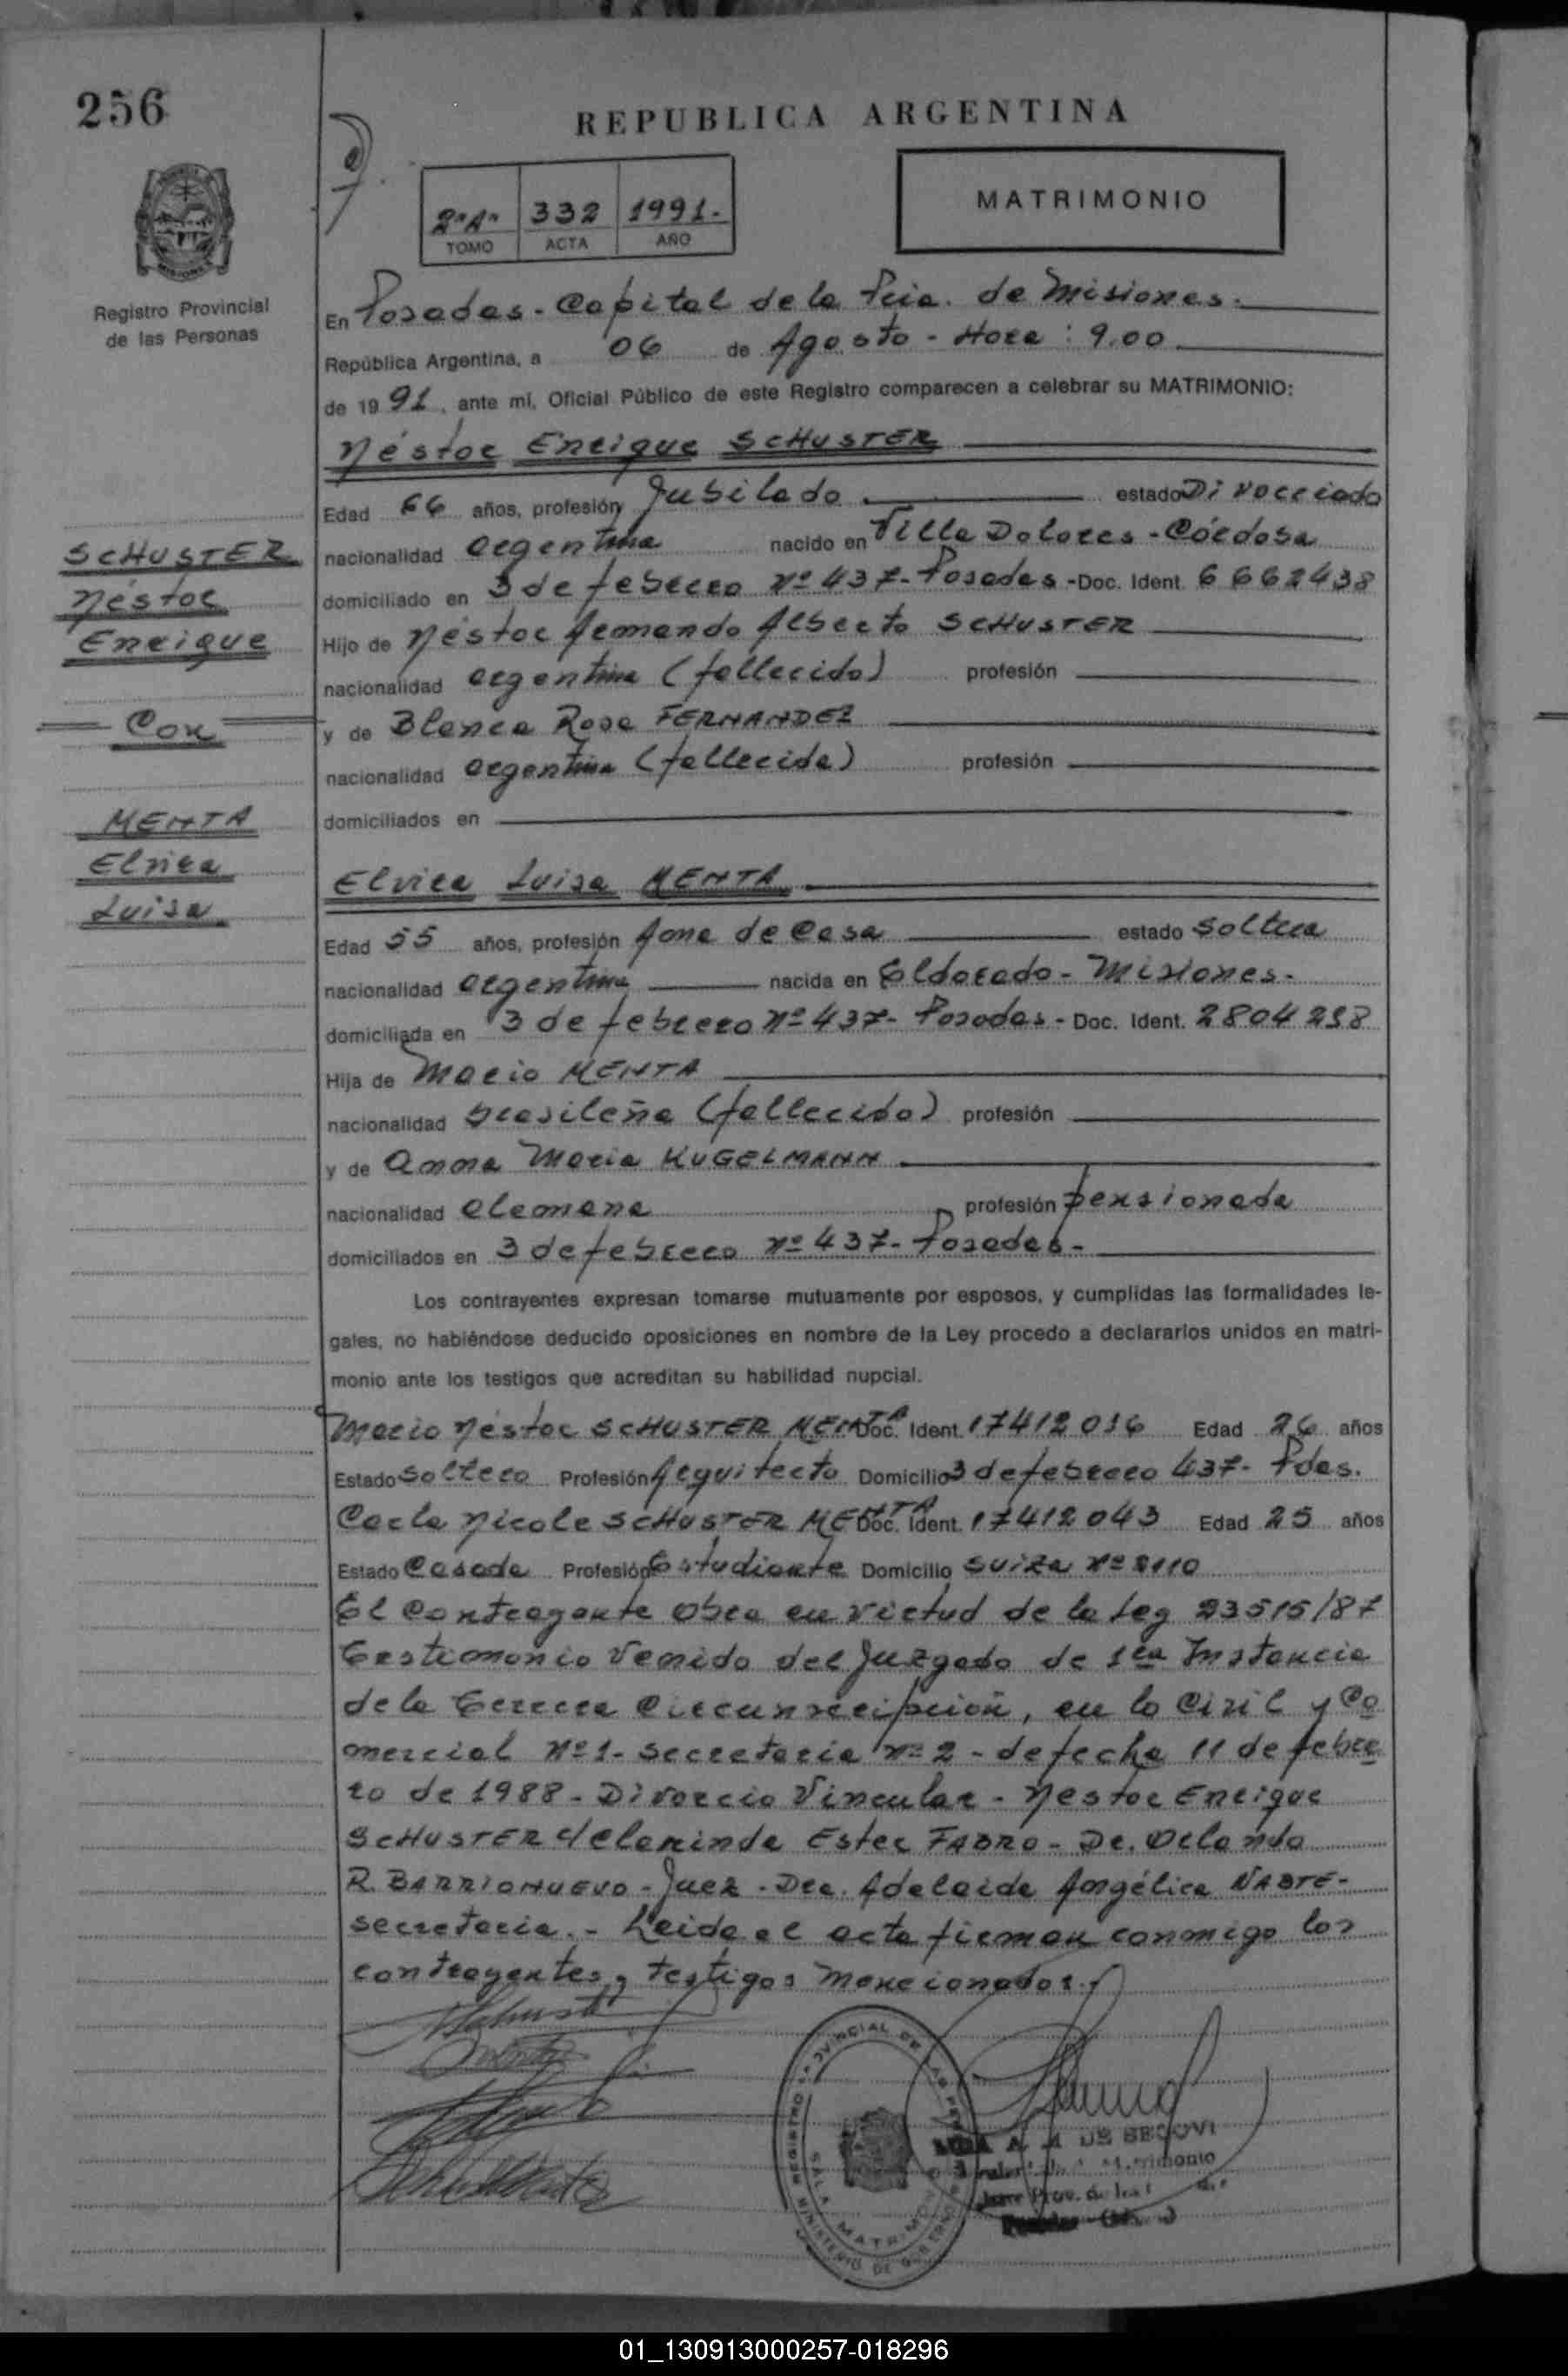 256
REPUBLICA ARGENTINA
332 1991.-
TOMO ACTA AÑO
MATRIMONIO
Registro Provincial
de las Personas
En Posadas - Capital de la Pcia. de Misiones.
República Argentina, a 06 de Agosto - Hora: 9.00
de 1991, ante mí, Oficial Público de este Registro comparecen a celebrar su MATRIMONIO:
Néstor Enrique SCHUSTER
Edad 66 años, profesión Jubilado estado Divorciado
nacionalidad argentina nacido en Villa Dolores - Córdoba
domiciliado en 3 de febrero Nº 437 - Posadas - Doc. Ident. 6662438
Hijo de Néstor Armando Alberto SCHUSTER
nacionalidad argentina (fallecido) profesión
y de Blanca Rosa FERNANDEZ
nacionalidad argentina (fallecida) profesión
domiciliados en
SCHUSTER
Néstor
Enrique
Con
MENTA
Elvira
Luisa
Elvira Luisa MENTA
Edad 55 años, profesión Ama de Casa estado Soltera
nacionalidad argentina nacida en Eldorado - Misiones -
domiciliada en 3 de febrero Nº 437 - Posadas - Doc. Ident.
Hija de Mario MENTA
nacionalidad brasileña (fallecido) profesión
y de Anna Maria KUGELMANN
nacionalidad alemana profesión pensionada
domiciliados en 3 de febrero Nº 437 - Posadas -
Los contrayentes expresan tomarse mutuamente por esposos, y cumplidas las formalidades le-
gales, no habiéndose deducido oposiciones en nombre de la Ley procedo a declararlos unidos en matri-
monio ante los testigos que acreditan su habilidad nupcial.
Mario Néstor SCHUSTER MENTA Doc. Ident. 17412036 Edad 26 años
Estado Soltero Profesión Arquitecto Domicilio 3 de febrero 437 - Pdas.
Carla Nicole SCHUSTER MENTA Doc. Ident. 17412043 Edad 25 años
Estado Casada Profesión Estudiante Domicilio Suiza Nº 2110
El Contrayente Obra en virtud de la Ley 23515/87
Testimonio Venido del Juzgado de 1ra Instancia
de la Tercera Circunscripción, en lo Civil y Co
mercial Nº 1 - Secretaria Nº 2 - de fecha 11 de febre
ro de 1988 - Divorcio Vincular - Nestor Enrique
SCHUSTER c/ Clorinda Ester FABRO - Dr. Orlando
R. BARRIONUEVO - Juez - Dra. Adelaida Angélica
secretaria. - Leida el acta firman conmigo los
contrayentes y testigos mencionados.
REGISTRO PROVINCIAL DE LAS PERSONAS
MINISTERIO DE GOBIERNO
DE SEGOVI
01_130913000257-018296